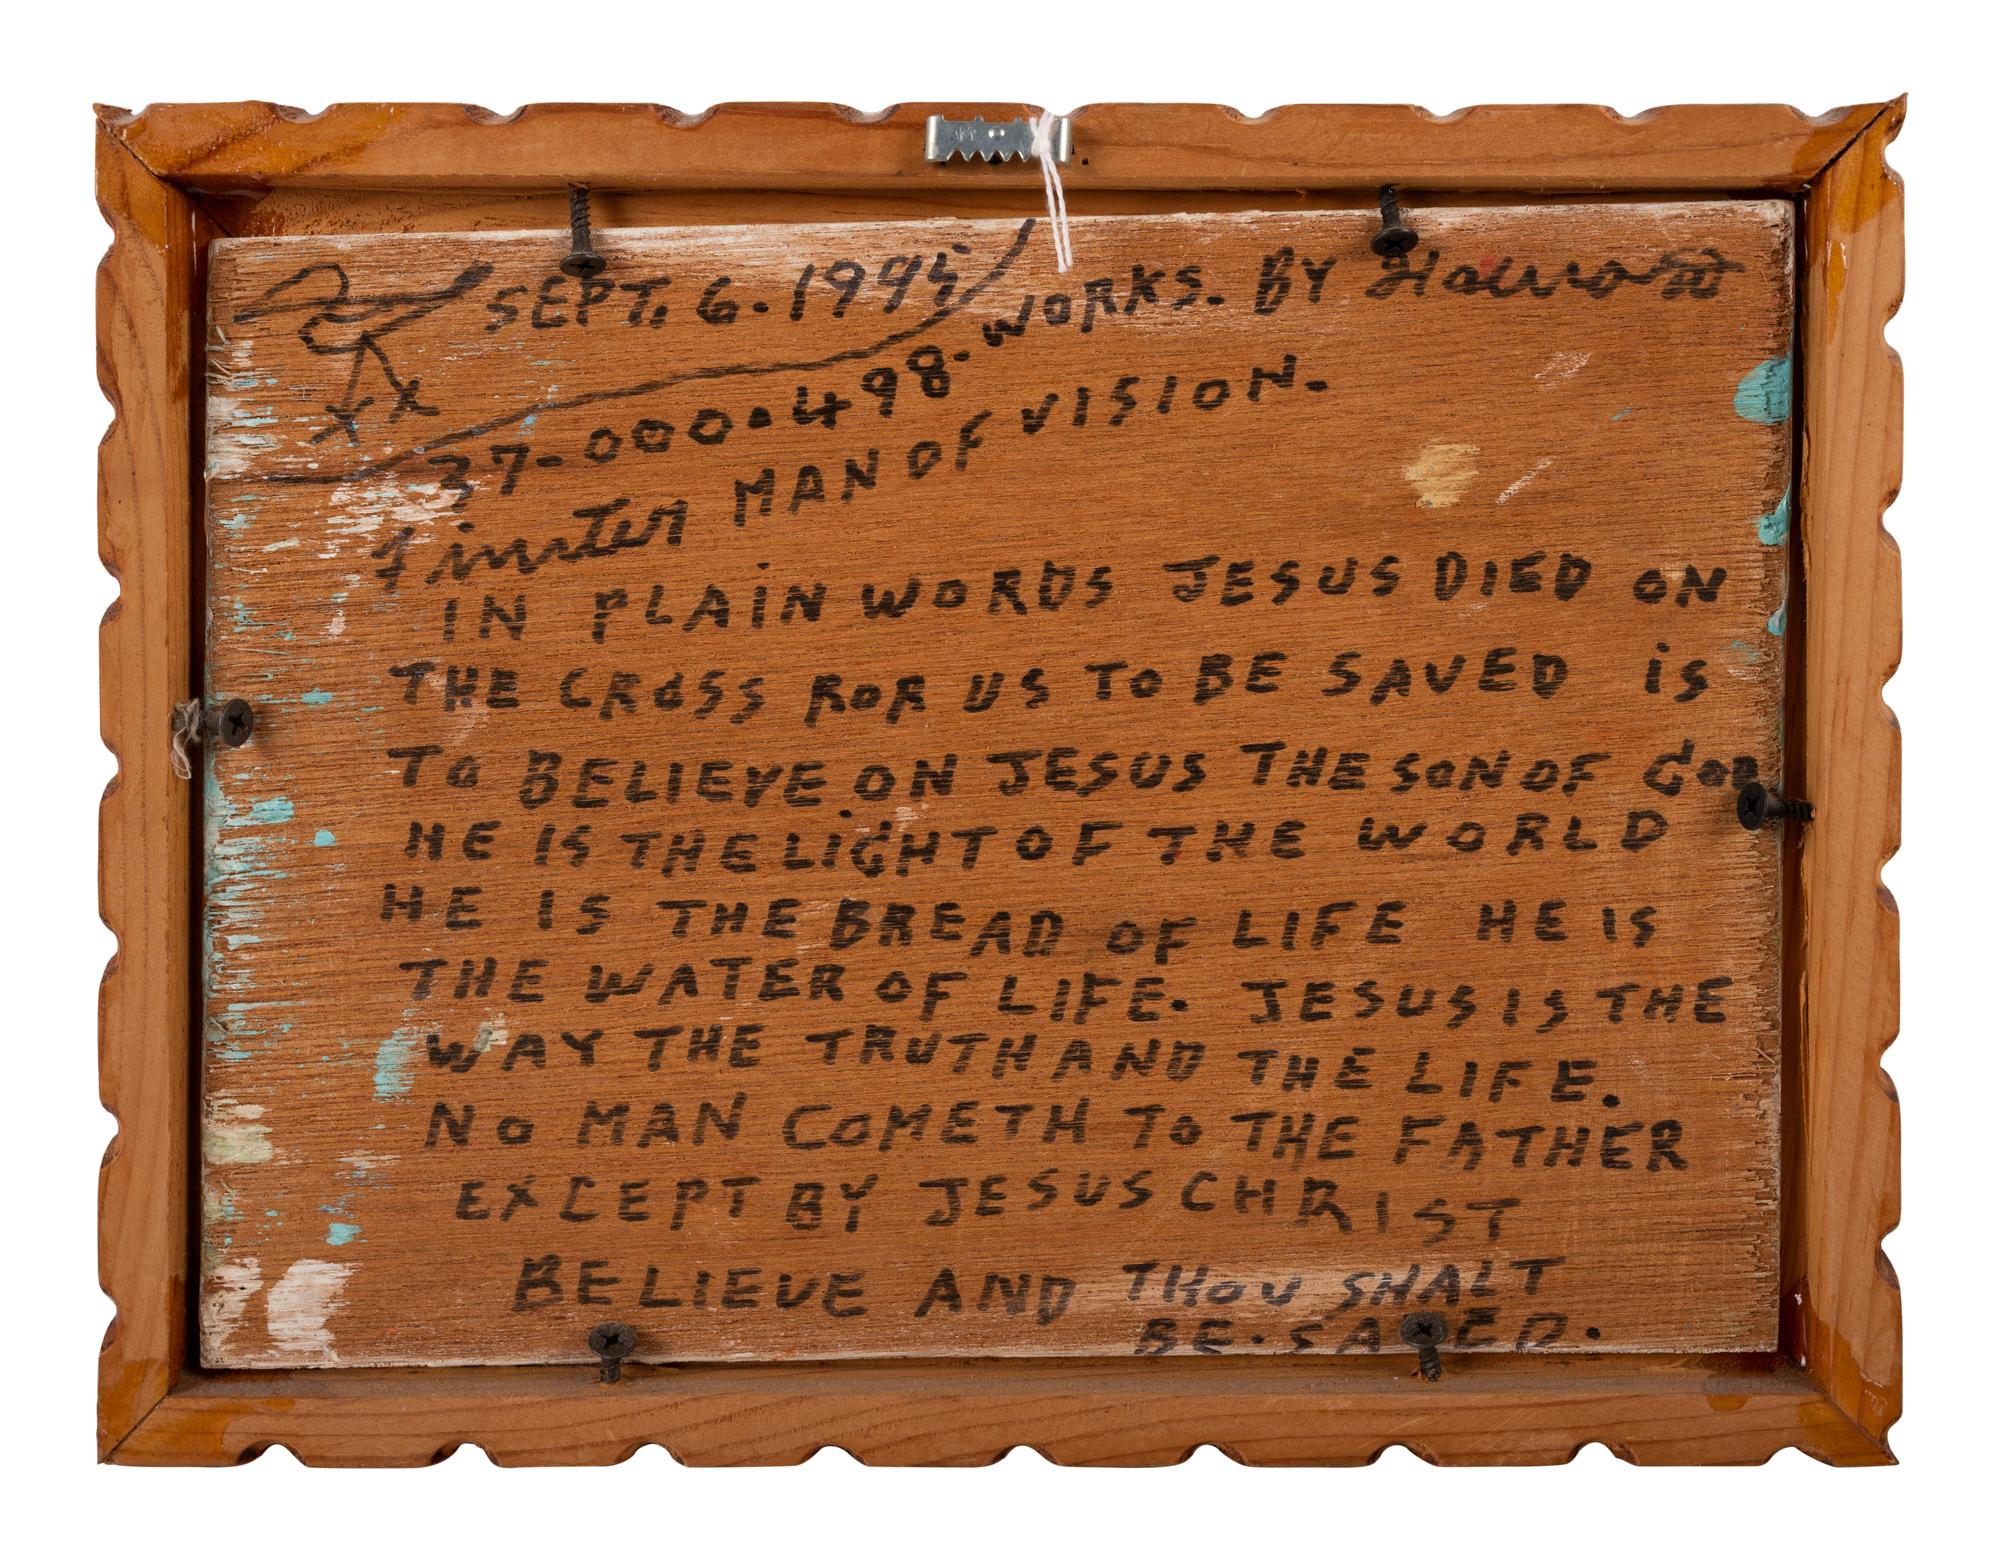 SEPT. 6. 1995
37-000.498. WORKS. BY Howard
Finster MAN OF VISION.
IN PLAIN WORDS JESUS DIED ON
THE CROSS ROR US TO BE SAVED is
To BELIEVE ON JESUS THE SON OF GOD
HE IS THE LiGHT OF THE WORLD
HE IS THE BREAD OF LIFE HE IS
THE WATER OF LIFE. JESUS IS THE
WAY THE TRUTH AND THE LIFE.
No MAN COMETH To THE FATHER
EXCEPT BY JESUS CHRIST
BELIEVE AND THOU SHALT
BE. SAVED.